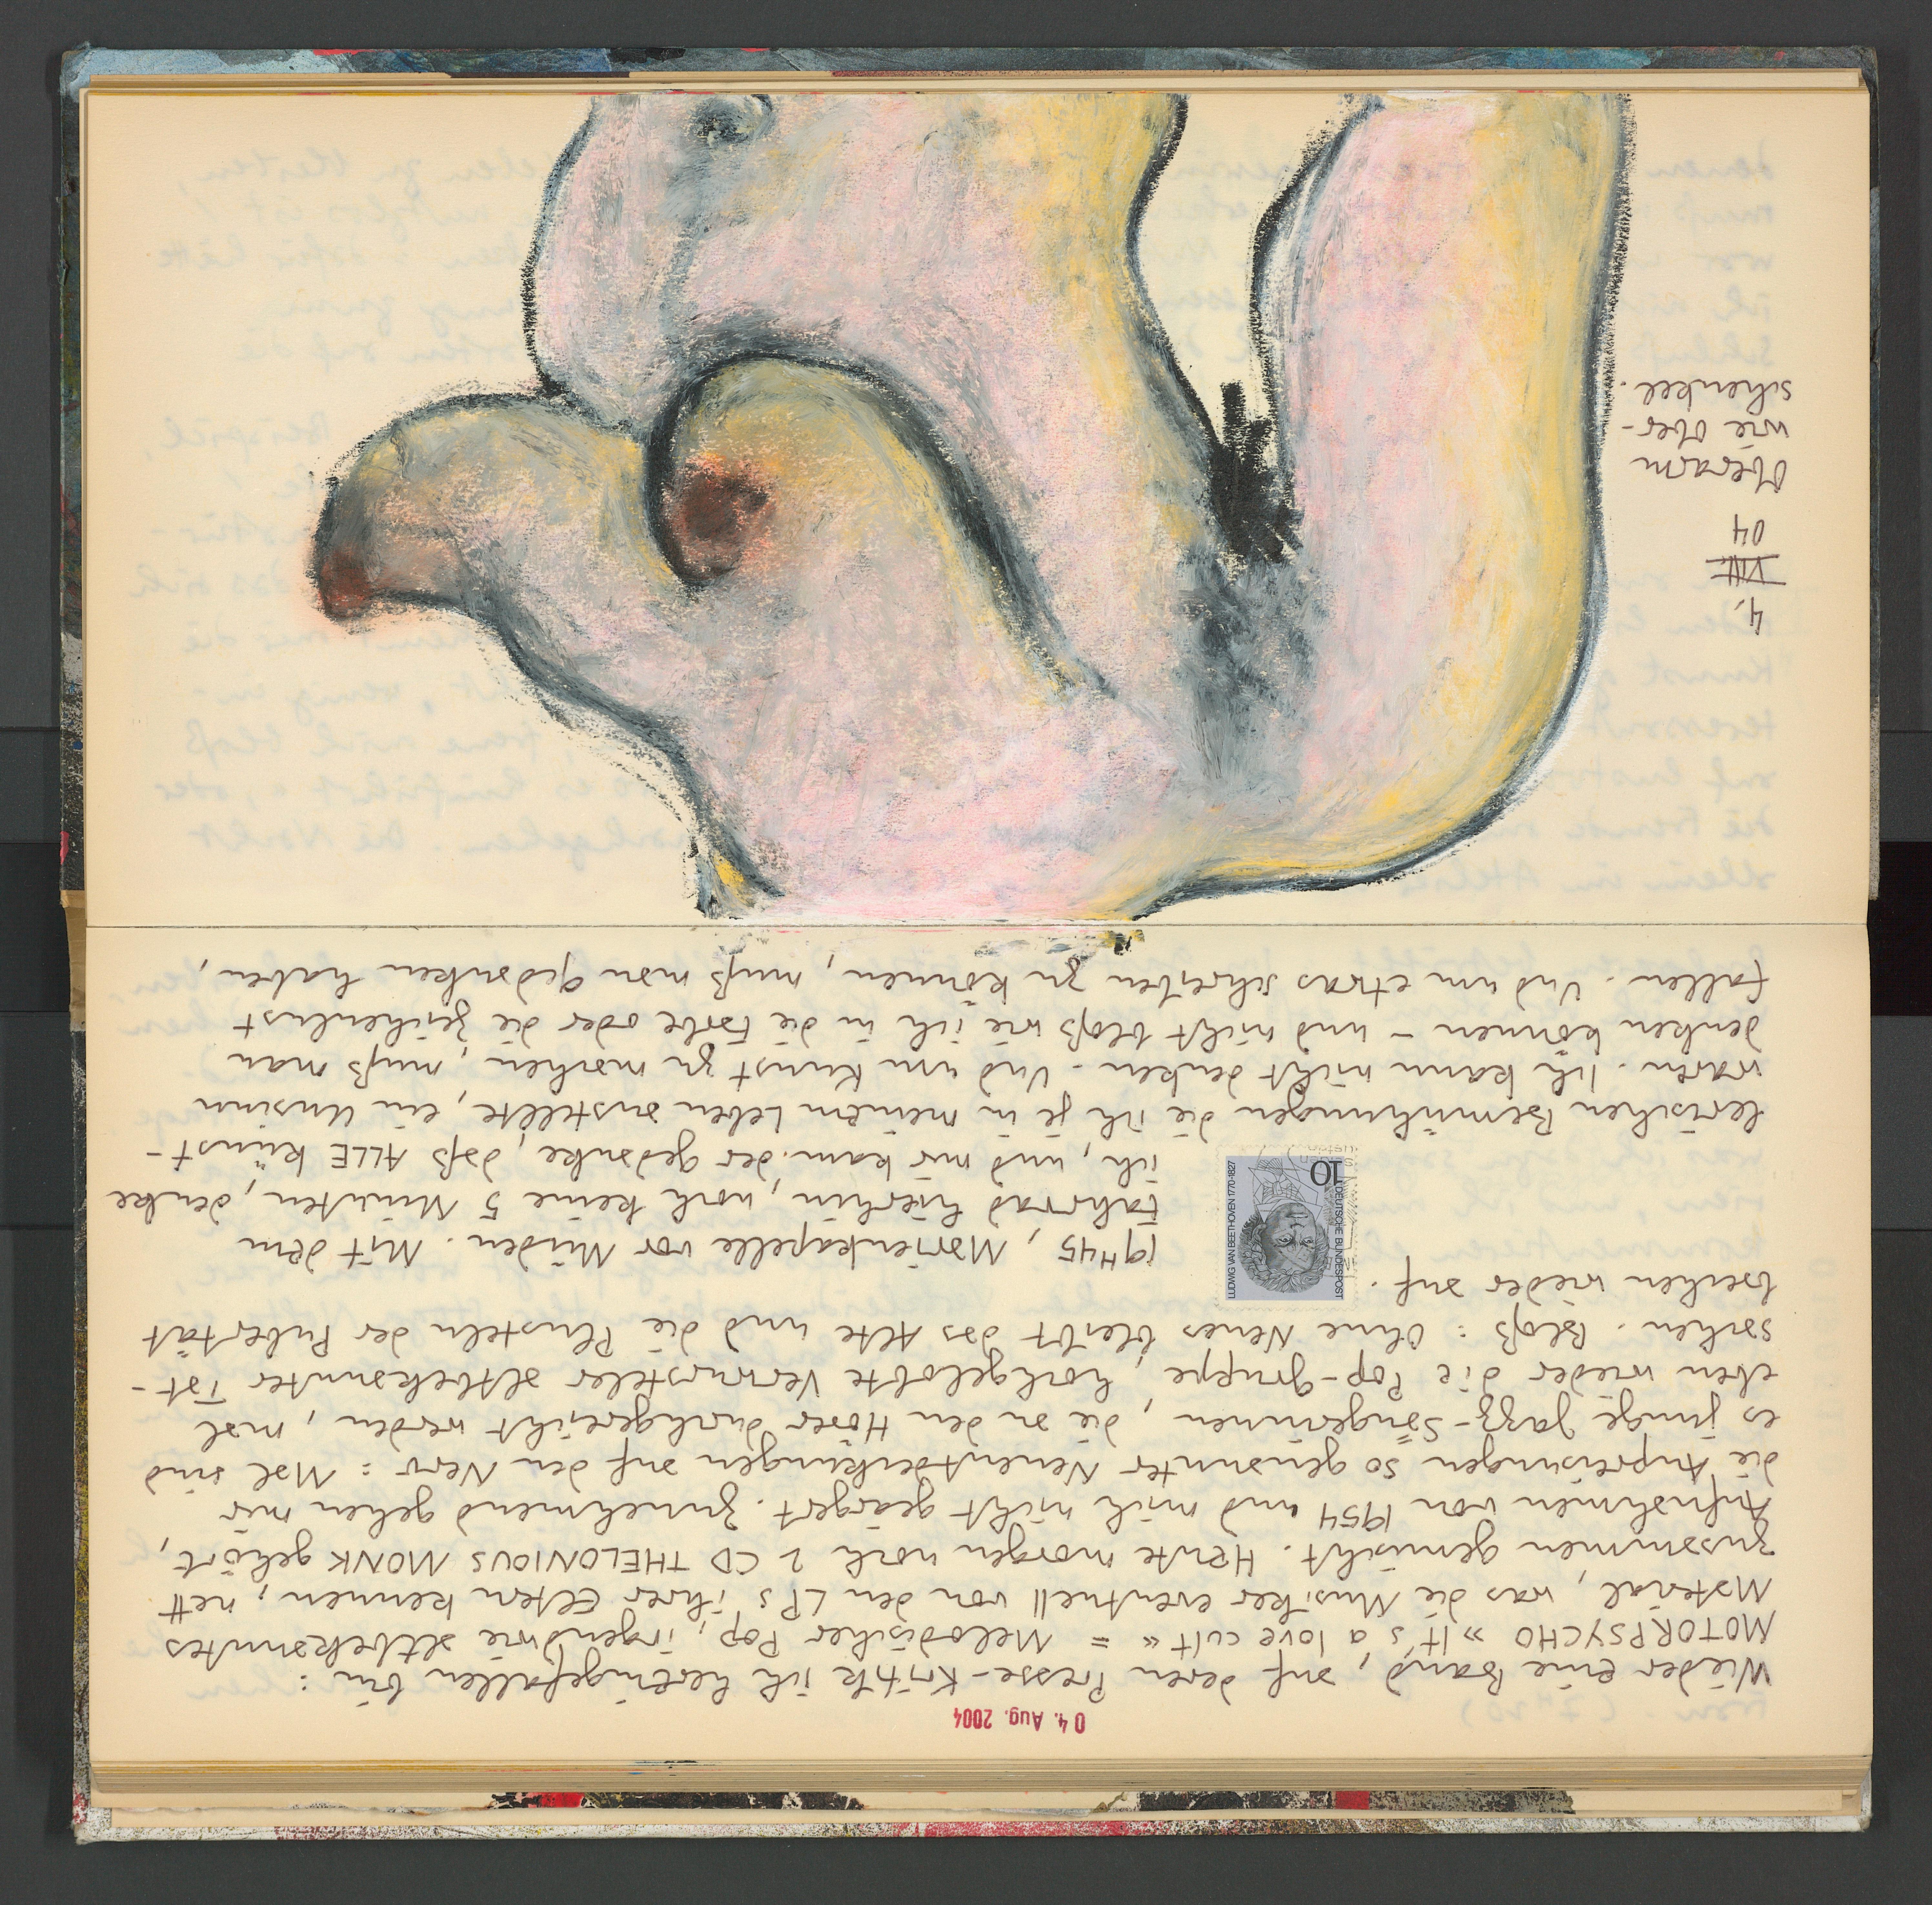 04. Aug. 2004
Wieder eine Band, auf deren Presse-Kritik ich hereingefallen bin :
MOTORPSYCHO »It's a love cult« = Melodischer Pop, irgendwie altbekanntes
Material, was die Musiker eventuell von den LPs ihrer Eltern kennen, nett
zusammen gemischt. Heute morgen noch 2 CD THELONIOUS MONK gehört,
Aufnahmen von 1954 und mich nicht geärgert. Zunehmend gehen mir
die Anpreisungen so genannter Neuentdeckungen auf den Nerv : Mal sind
es junge Jazz-Sängerinnen, die an den Hörer durchgereicht werden, mal
eben wieder die Pop-Gruppe, hochgelobte Verwursteler altbekannter Tat-
sachen. Bloß : Ohne Neues bleibt das Alte und die Pusteln der Pubertät
brechen wieder auf.
DEUTSCHE BUNDESPOST
10
LUDWIG VAN BEETHOVEN 1770-1827
19H45, Marienkapelle vor. Mit dem
Fahrrad hierhin, noch keine 5 Minuten, denke
ich, und mir kam der Gedanke, daß ALLE künst-
lerischen Bemühungen die ich je in meinem Leben anstellte, ein Unsinn
waren. Ich kann nicht denken. Und um Kunst zu machen, muß man
denken können – und nicht bloß wie ich in die Farbe oder die Zeichenlust
fallen. Und um etwas schreiben zu können, muß man Gedanken haben,
4.
VIII.
04
Oberarm
wie Ober-
schenkel.